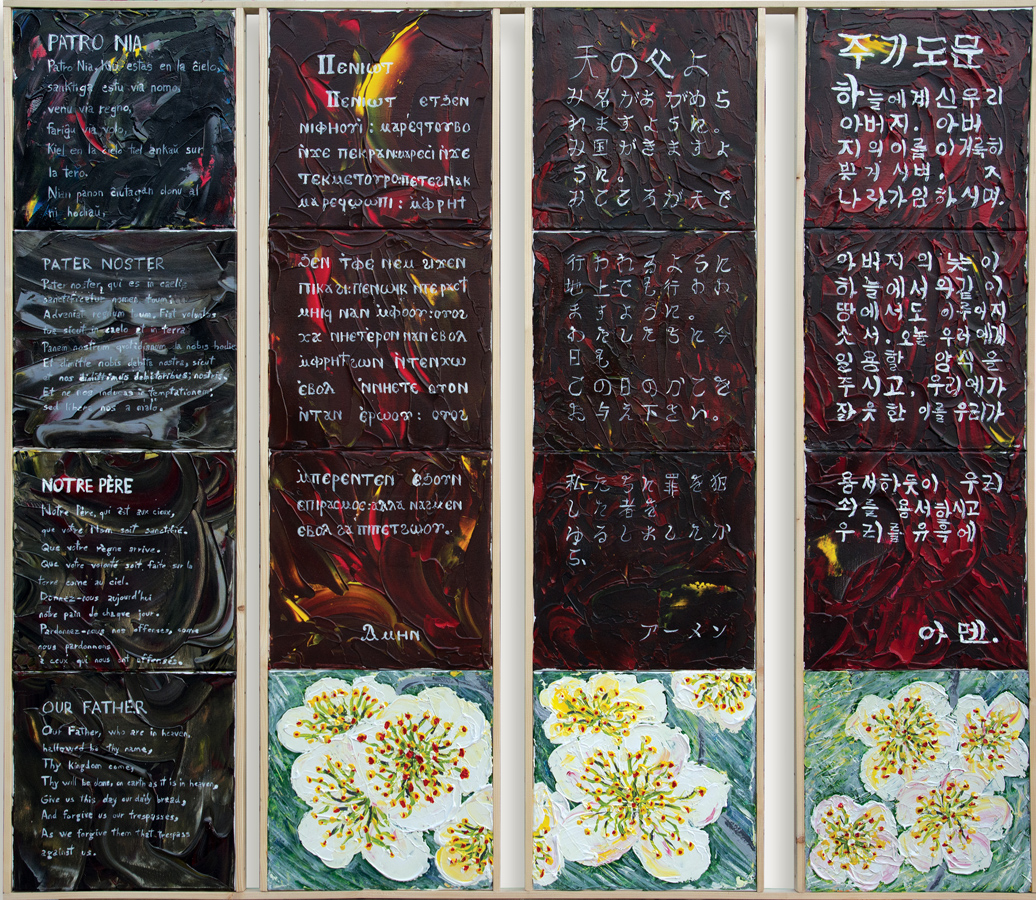 PATRO NIA
Patro Nia, Kiu estas en la ĉielo,
sanktiga estu via nomo,
venu via regno,
fariĝu via volo,
Kiel en la ĉielo tiel ankaŭ sur
la tero.
Nian panon ĉiutagan donu al
ni hodiaŭ.
PATER NOSTER
Pater noster, qui es in caelis
sanctificetur nomen tuum;
Adveniat regnum tuum. Fiat voluntas
tua sicut in caelo et in terra
Panem nostrum quotidianum da nobis hodie
Et dimitte nobis debita nostra, sicut
et nos dimittimus debitoribus nostris.
Et ne nos inducas in temptationem;
sed libera nos a malo.
NOTRE PÈRE
Notre Père, qui est aux cieux,
que votre Nom soit sanctifié.
Que votre règne arrive.
Que votre volonté soit faite sur la
terre come au ciel.
Donnez-nous aujourd'hui
nôtre pain de chaque jour.
Pardonnez-nous nos offenses, come
nous pardonnons
à ceux qui nous ont offensés.
OUR FATHER
Our Father, who are in heaven,
hallowed be thy name,
Thy Kingdom come,
Thy will be done, on earth as it is in heaven,
Give us this day our daily bread,
And forgive us our trespasses,
As we forgive them that trespass
against us.
Ⲡⲉⲛⲓⲱⲧ
Ⲡⲉⲛⲓⲱⲧ ⲉⲧϧⲉⲛ
ⲛⲓⲫⲏⲟⲩⲓ: ⲙⲁⲣⲉϥⲧⲟⲩⲃⲟ
ⲛ̀ϫⲉ ⲡⲉⲕⲣⲁⲛ:ⲙⲁⲣⲉⲥⲓ̀ ⲛ̀ϫⲉ
ⲧⲉⲕⲙⲉⲧⲟⲩⲣⲟ:ⲡⲉⲧⲉϩⲛⲁⲕ
ⲙⲁⲣⲉϥϣⲱⲡⲓ: ⲙ̀ⲫⲣⲏϯ
ϧⲉⲛ ⲧ̀ⲫⲉ ⲛⲉⲙ ϩⲓϫⲉⲛ
ⲡⲓⲕⲁϩⲓ:ⲡⲉⲛⲱⲓⲕ ⲛ̀ⲧⲉⲣⲁⲥϯ
ⲙⲏⲓϥ ⲛⲁⲛ ⲙ̀ⲫⲟⲟⲩ:ⲟⲩⲟϩ
ⲭⲁ ⲛⲏⲉⲧⲉⲣⲟⲛ ⲛⲁⲛ ⲉⲃⲟⲗ
ⲙ̀ⲫⲣⲏϯ ϩⲱⲛ ⲛ̀ⲧⲉⲛⲭⲱ
ⲉ̀ⲃⲟⲗ ⲛ̀ⲛⲏⲉⲧⲉ ⲟⲩⲟⲛ
ⲛ̀ⲧⲁⲛ ⲉ̀ⲣⲱⲟⲩ: ⲟⲩⲟϩ
ⲙ̀ⲡⲉⲣⲉⲛⲧⲉⲛ ⲉ̀ϧⲟⲩⲛ
ⲉⲡⲓⲣⲁⲥⲙⲟⲥ:ⲁⲗⲗⲁ ⲛⲁϩⲙⲉⲛ
ⲉⲃⲟⲗ ϩⲁ ⲡⲓⲡⲉⲧϩⲱⲟⲩ.
Ⲁⲙⲏⲛ
天の父よ
み名があがめら
れますように。
み国がきますよ
うに。
みこころが天で
行われるように
地上でも行われ
ますように。
わたしたちに今
日も
この日のかてを
お与え下さい。
私たちに罪を犯
した者を
ゆるしましたか
ら、
アーメン
주기도문
하늘에계신우리
아버지. 아버
지의이름이거룩히
받기시며.
나라가임하시며.
아버지의 뜻이
하늘에서 와같이
땅에서도 이루어지
소서. 오늘 우리에게
일용할 양식을
주시고, 우리에가
죄웃한 이를 우리가
용서하듯이 우리
죄를 용서하시고
우리를유혹에
아멘.